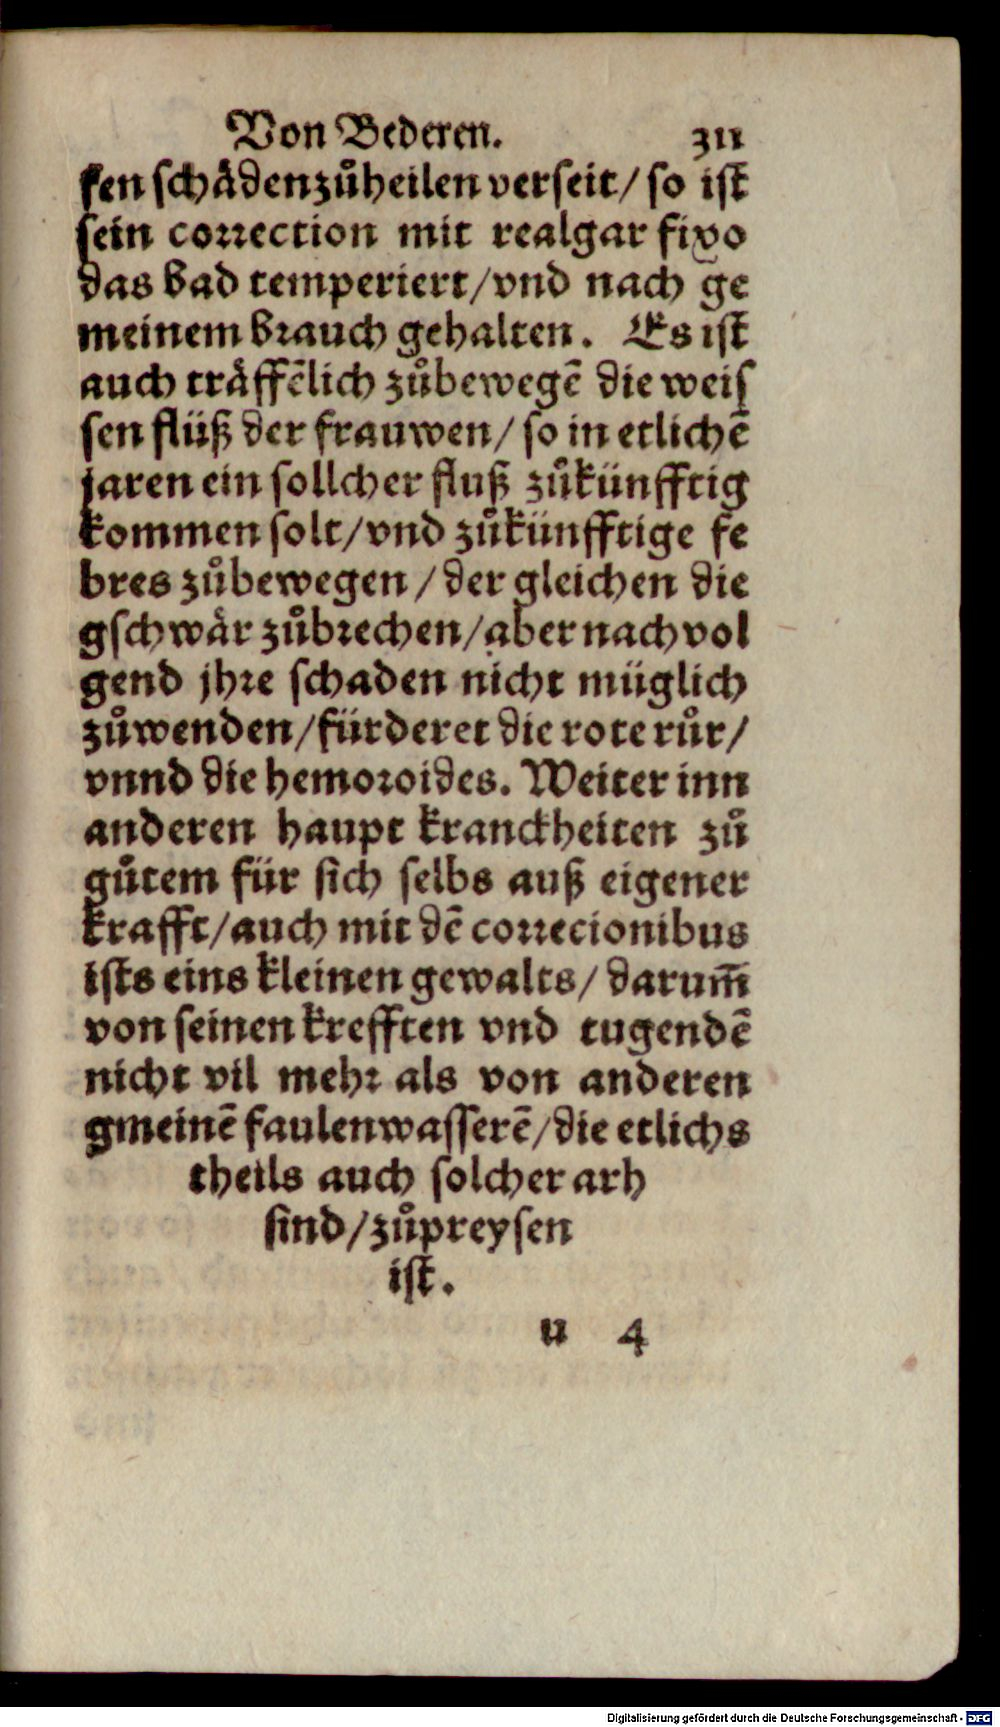 Von Bederen. 311
ken schädenzůheilen verseit/ so ist
sein correction mit realgar fixo
das bad temperiert/vnd nach ge
meinem brauch gehalten. Es ist
auch träffēlich zůbewegē die weis
sen flüß der frauwen/ so in etlichē
jaren ein sollcher fluß zůkünfftig
kommen solt/vnd zůkünfftige fe
bres zůbewegen/der gleichen die
gschwär zůbrechen/aber nachvol
gend jhre schaden nicht müglich
zůwenden/fürderet die rote růr/
vnnd die hemoroides. Weiter inn
anderen haupt kranckheiten zů
gůtem für sich selbs auß eigener
krafft/auch mit dē correcionibus
ists eins kleinen gewalts/ darum̄
von seinen krefften vnd tugendē
nicht vil mehr als von anderen
gmeinē faulenwasserē/die etlichs
theils auch solcher arh
sind/zůpreysen
ist.
u 4
Digitalisierung gefördert durch die Deutsche Forschungsgemeinschaft - DFG